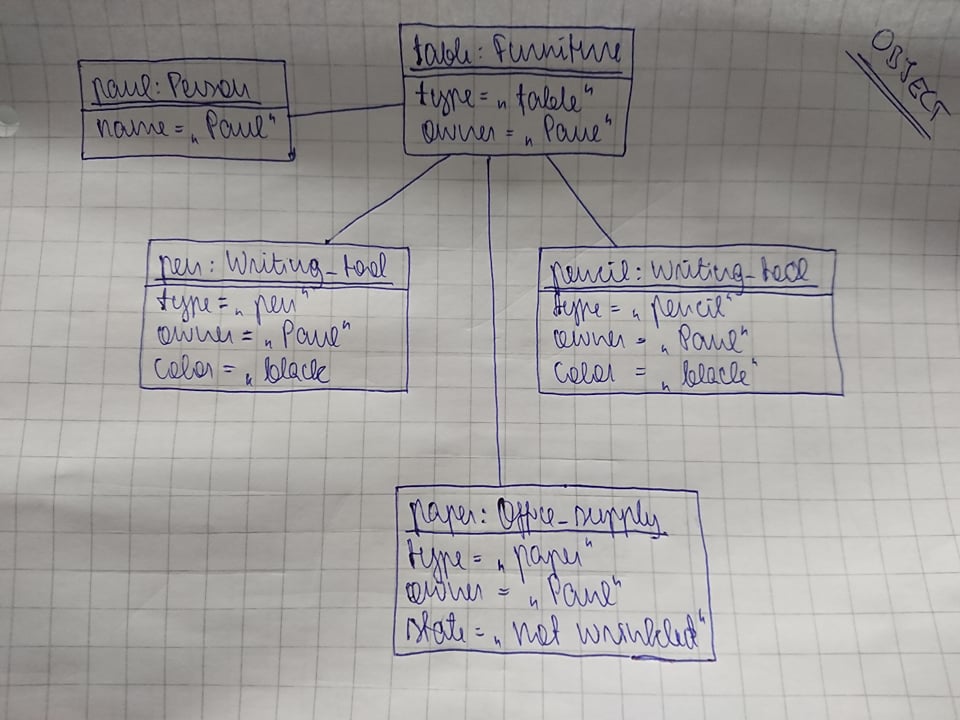 OBJECT
paul: Person
name = „Paul“
table: Furniture
type = „table“
owner = „Paul“
pen: Writing_tool
type = „pen“
owner = „Paul“
color = „black
pencil: Writing_tool
type = „pencil“
owner = „Paul“
color = „black“
paper: Office_supply
type = „paper“
owner = „Paul“
state = „not wrinkled“